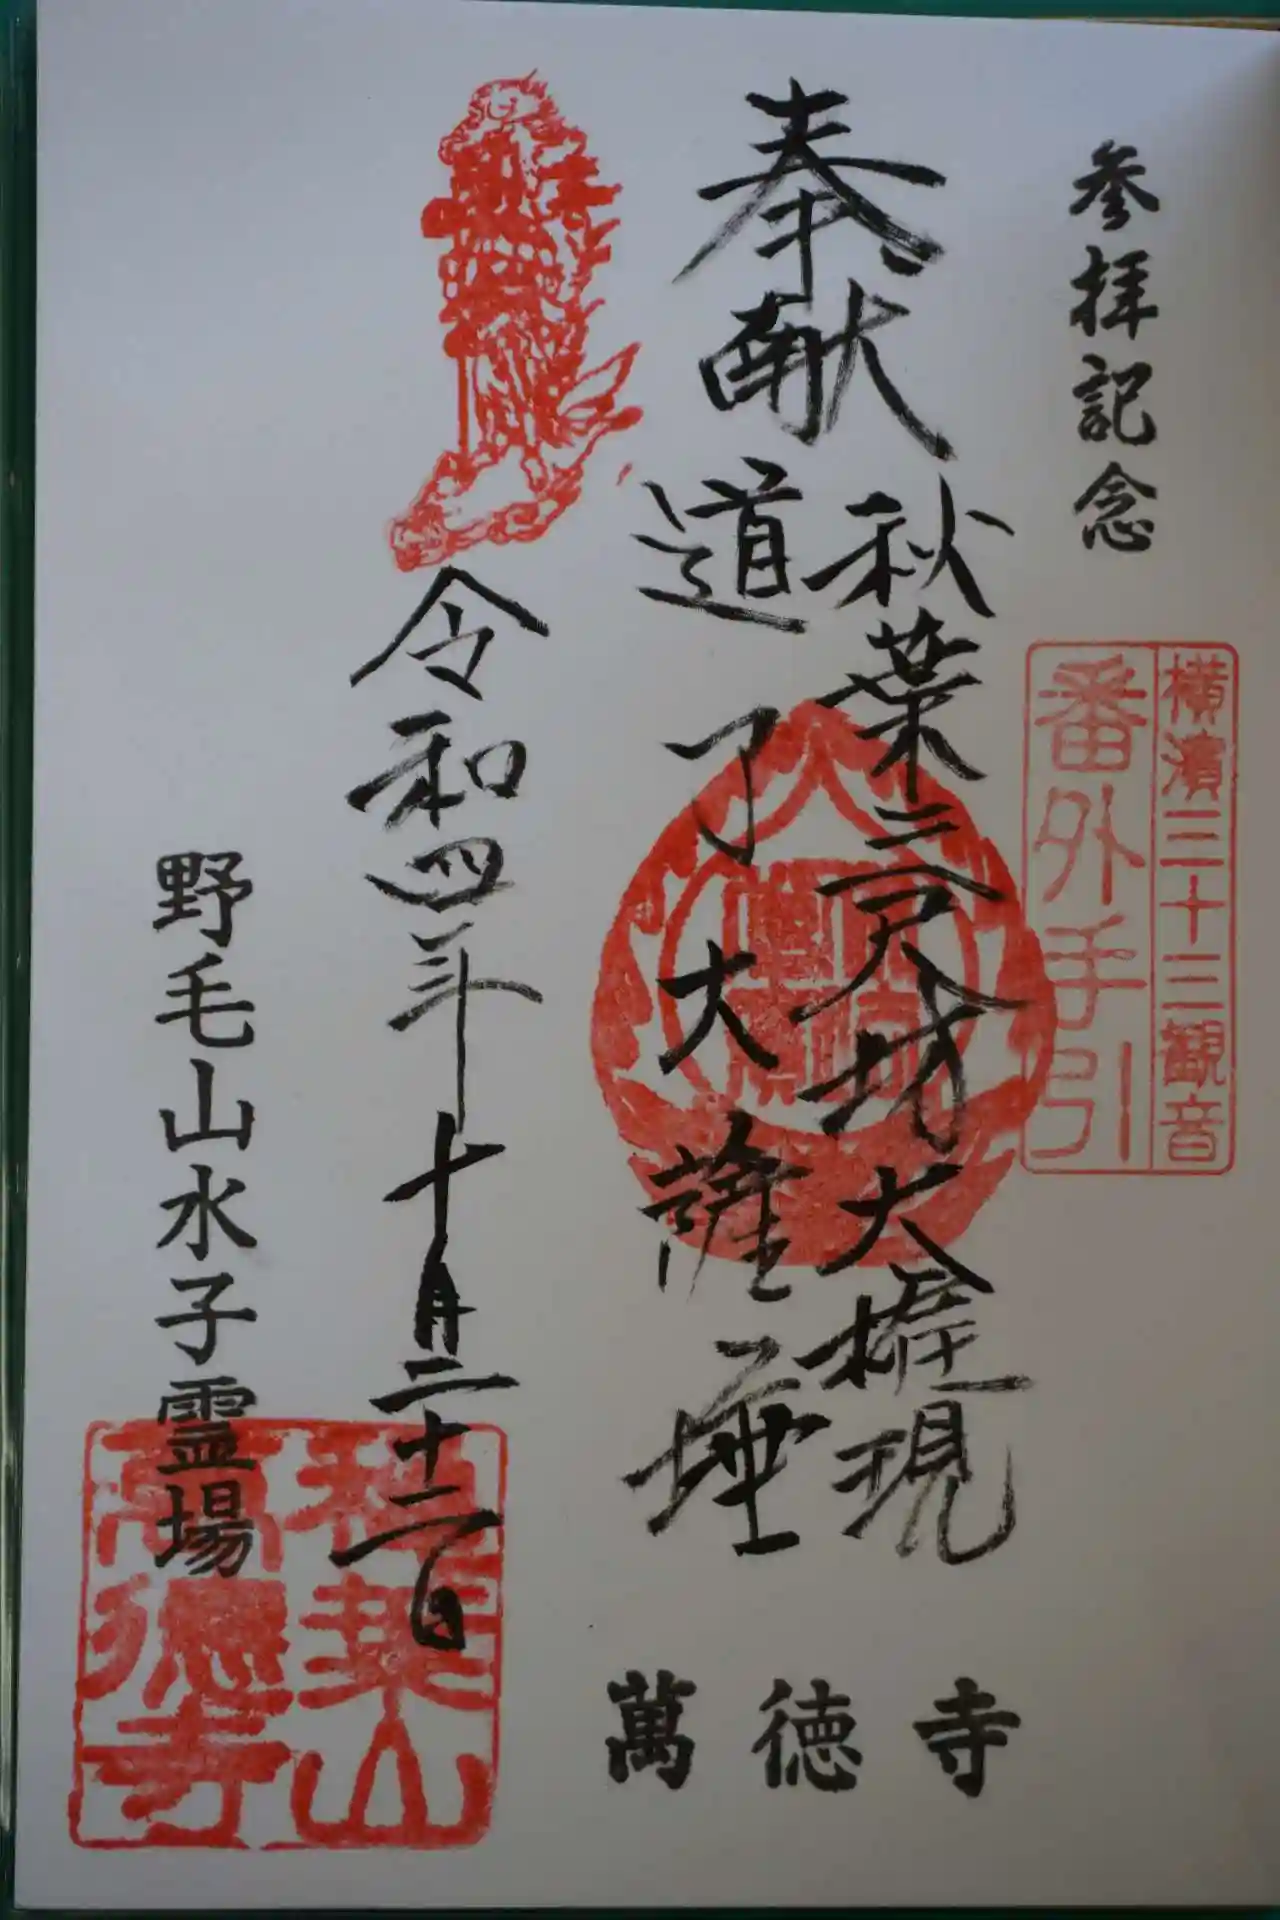 参拝記念
横濱三十三観音
番外手引
奉献
秋葉三尺坊大権現
道了大薩埵
令和四年十月二十二日
野毛山水子霊場
萬徳寺
秋葉山
萬徳寺